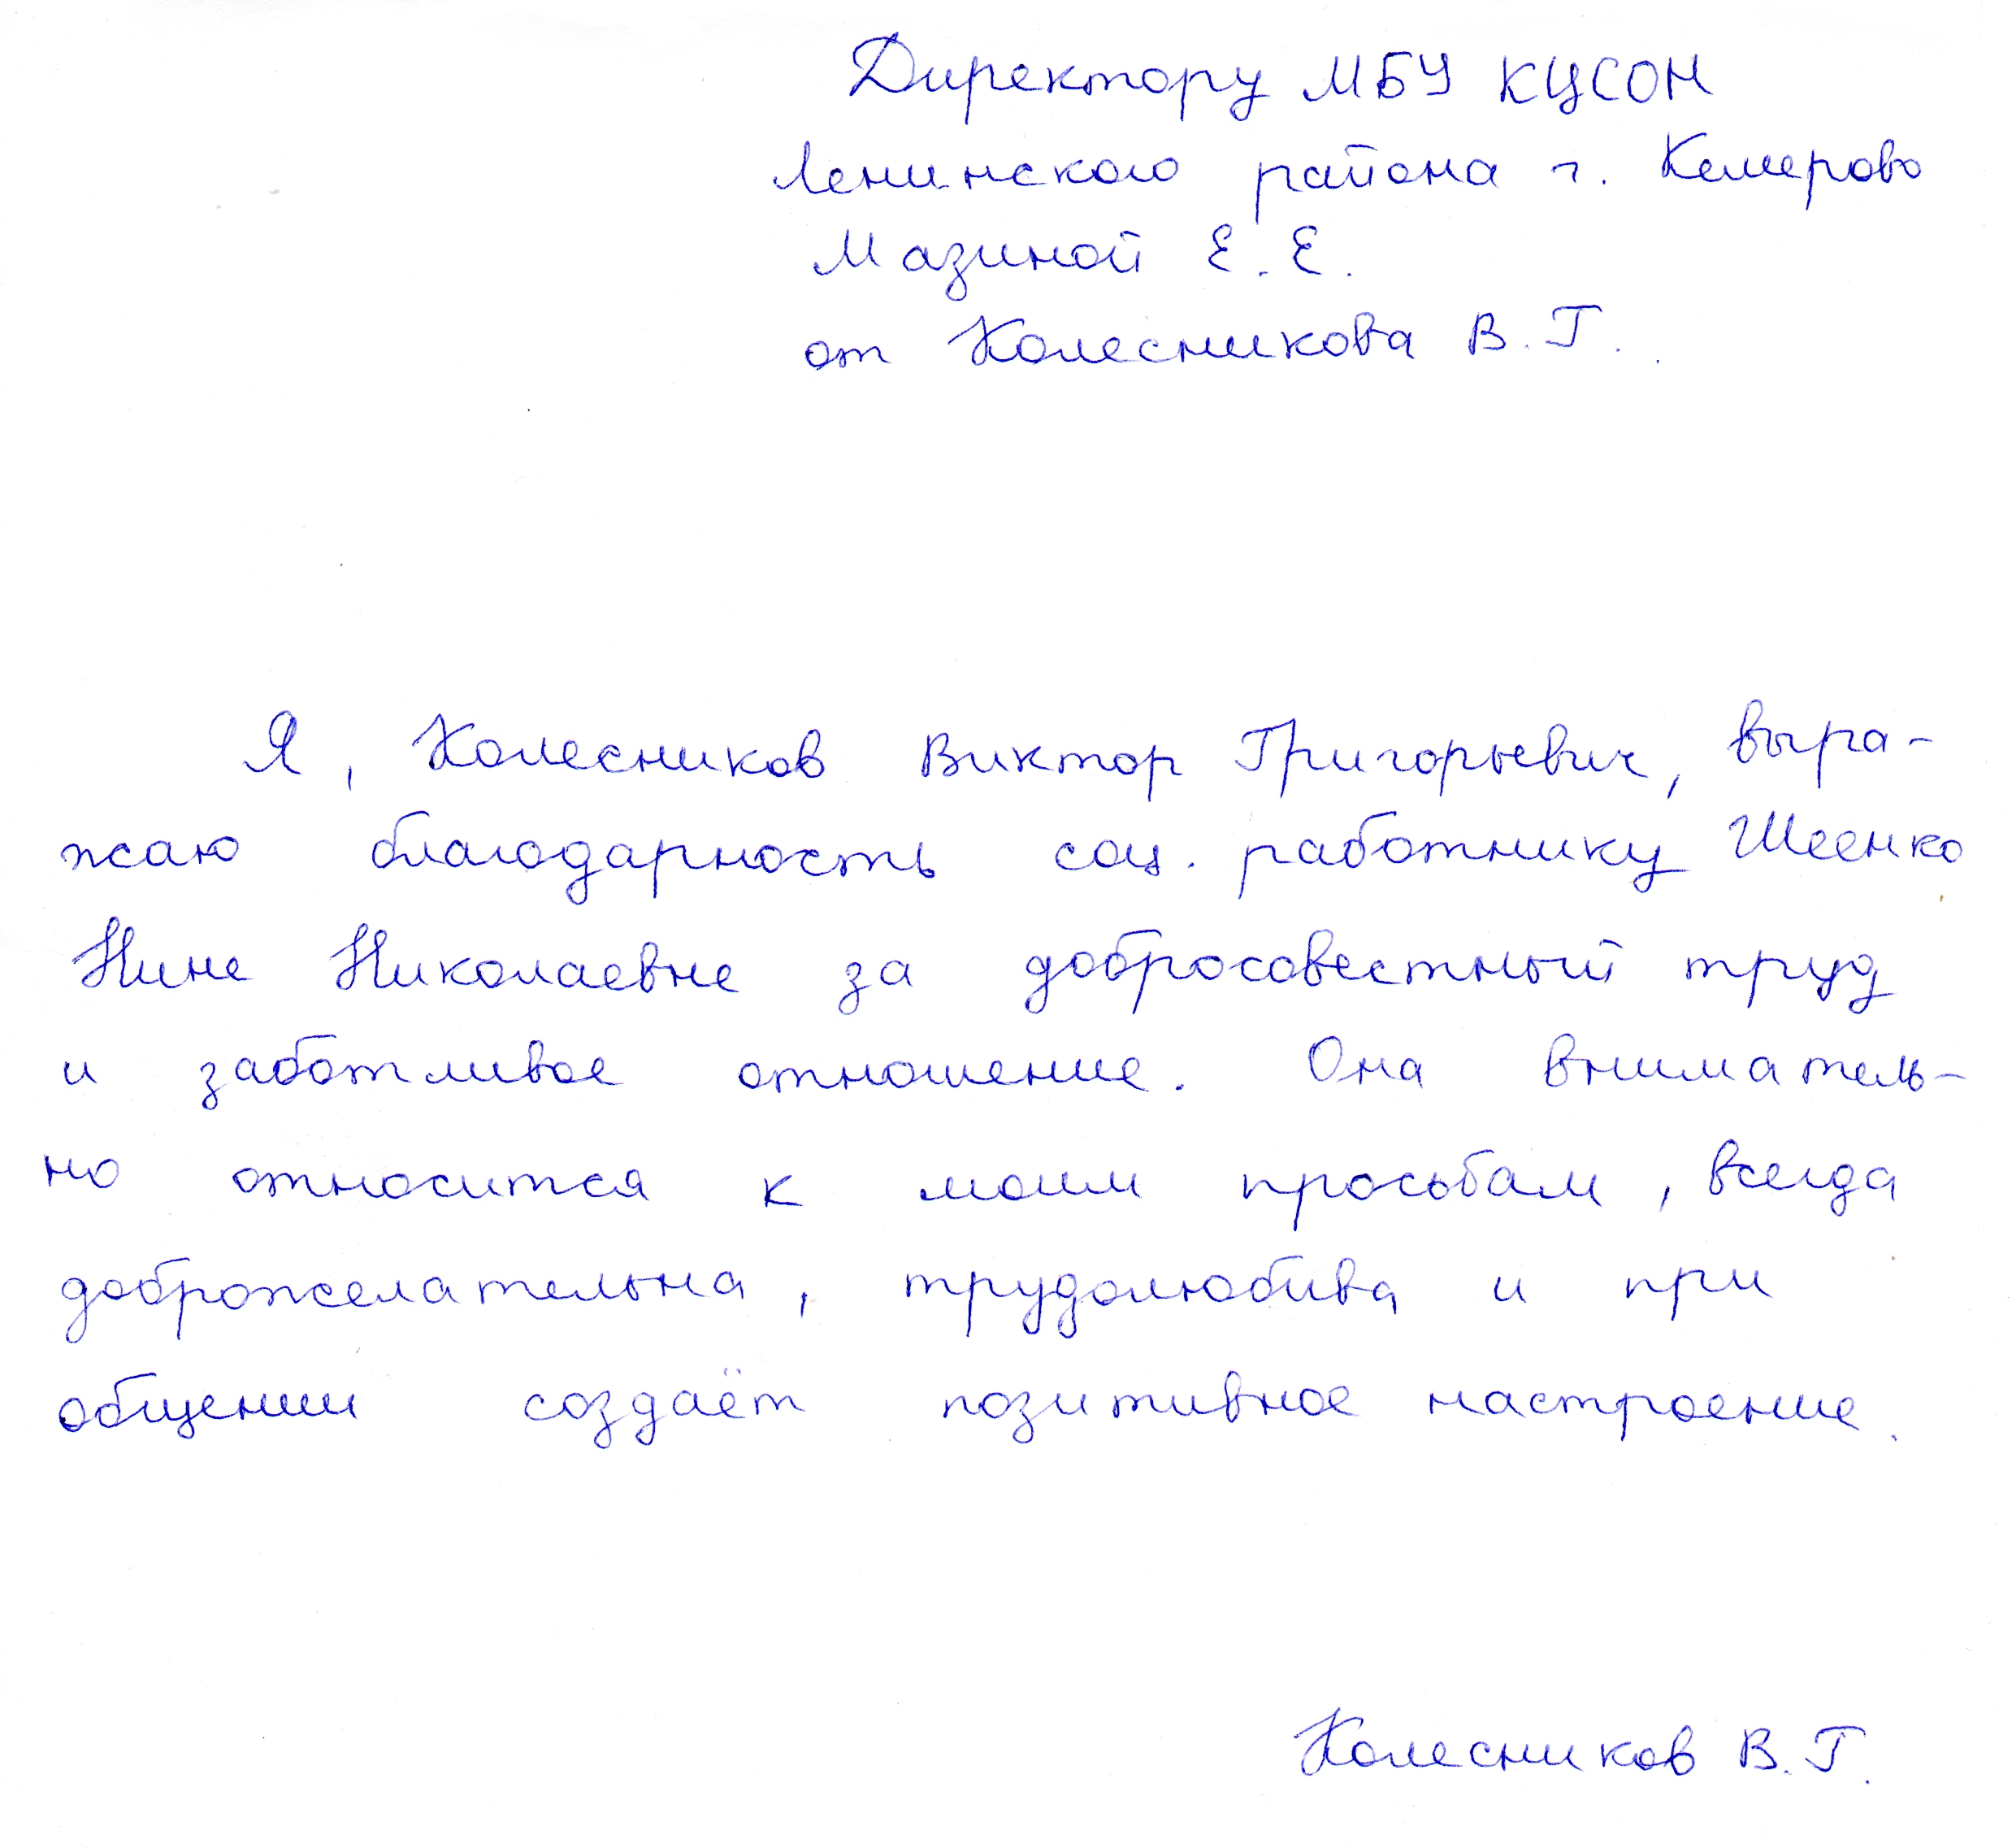 Директору МБУ КЦСОН
Ленинского района г. Кемерово
Мазиной Е. Е.
от Колесникова В. Г.
Я, Колесников Виктор Григорьевич, выра-
жаю благодарность соц. работнику Шеенко
Нине Николаевне за добросовестный труд
и заботливое отношение. Она вниматель-
но относится к моим просьбам, всегда
доброжелательна, трудолюбива и при
общении создаёт позитивное настроение.
Колесников В. Г.